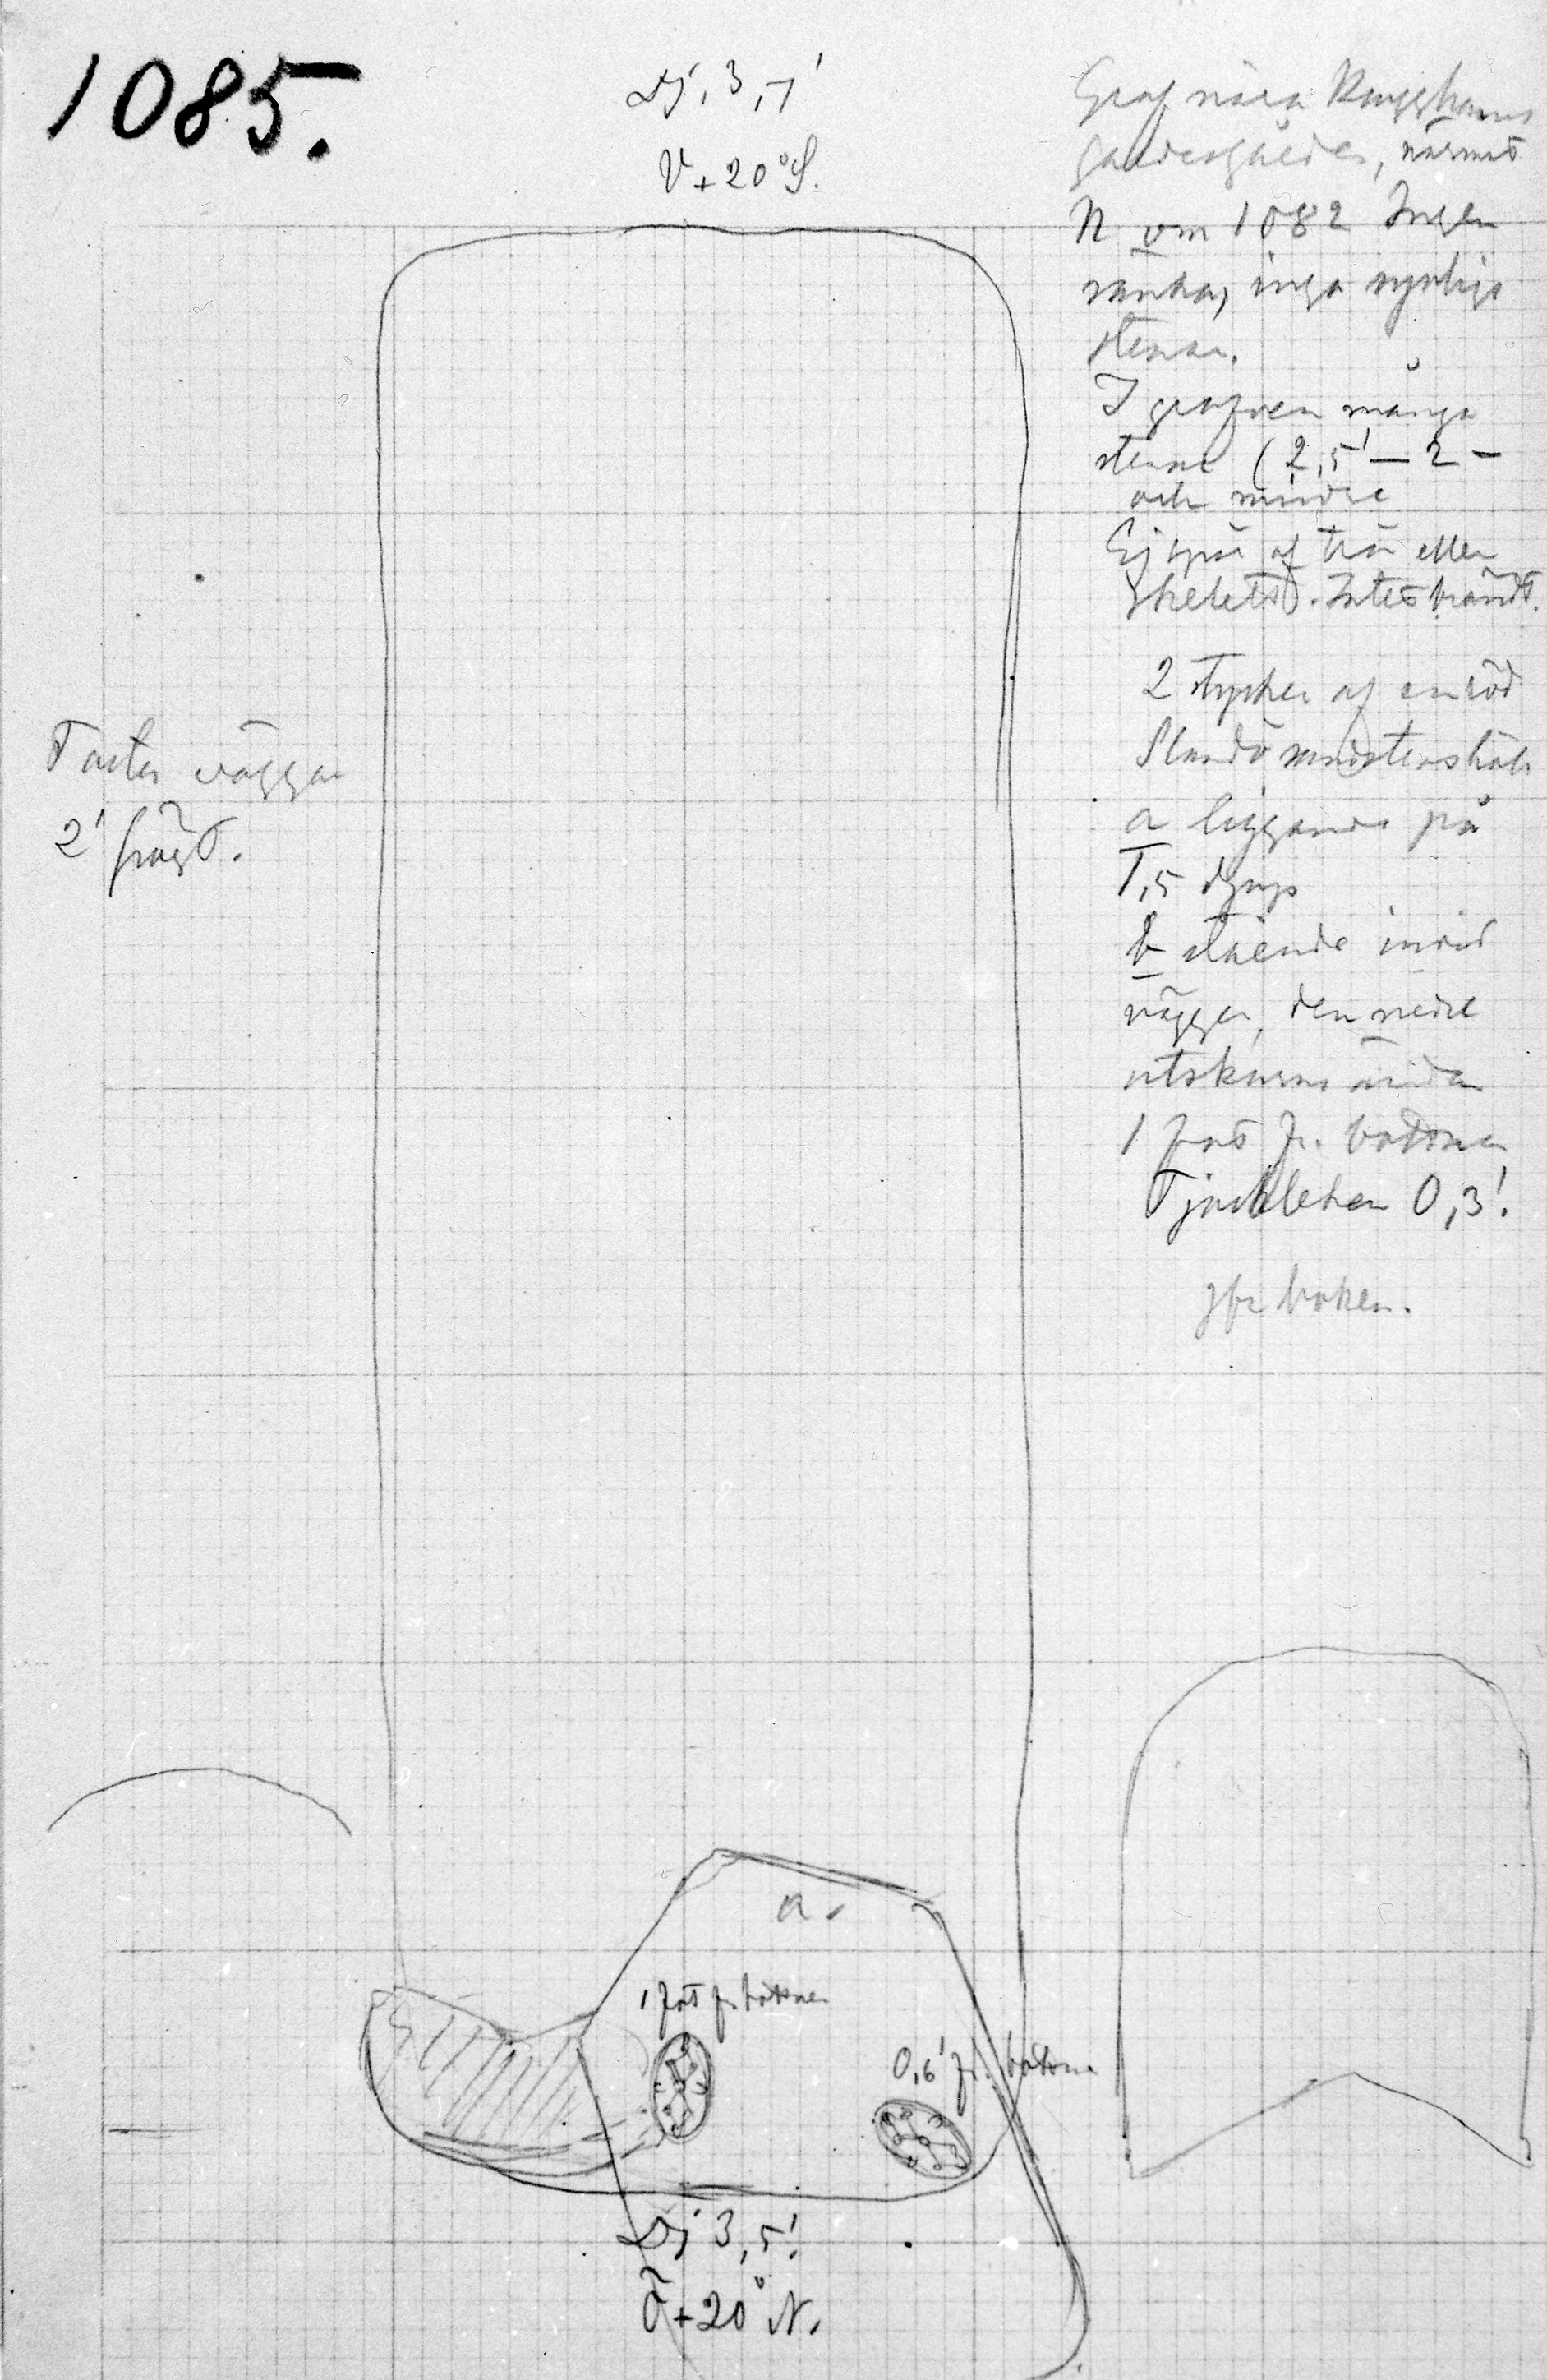 1085.
Dj. 3,7'
V + 20° S.
Graf nära Ringghems
gärdesgården, närmast
N om 1082 Ingen
ränka, inga synliga
stenar.
I grafven många
stenar (2,5' — 2 —
och mindre
Ej spår af trä eller
skelett. Intet brändt.
2 stycken af en röd
sandstenshäll
a liggande på
1,5 djup
b stående invid
väggen, den nedre
utskurna ändan
1 fot fr. bottnen
Tjockleken 0,3'.
jfr boken.
Fasta väggar
2' högt.
a.
1 fot fr. bottnen
0,6' fr. bottne
Dj 3,5'.
Ö + 20° N.